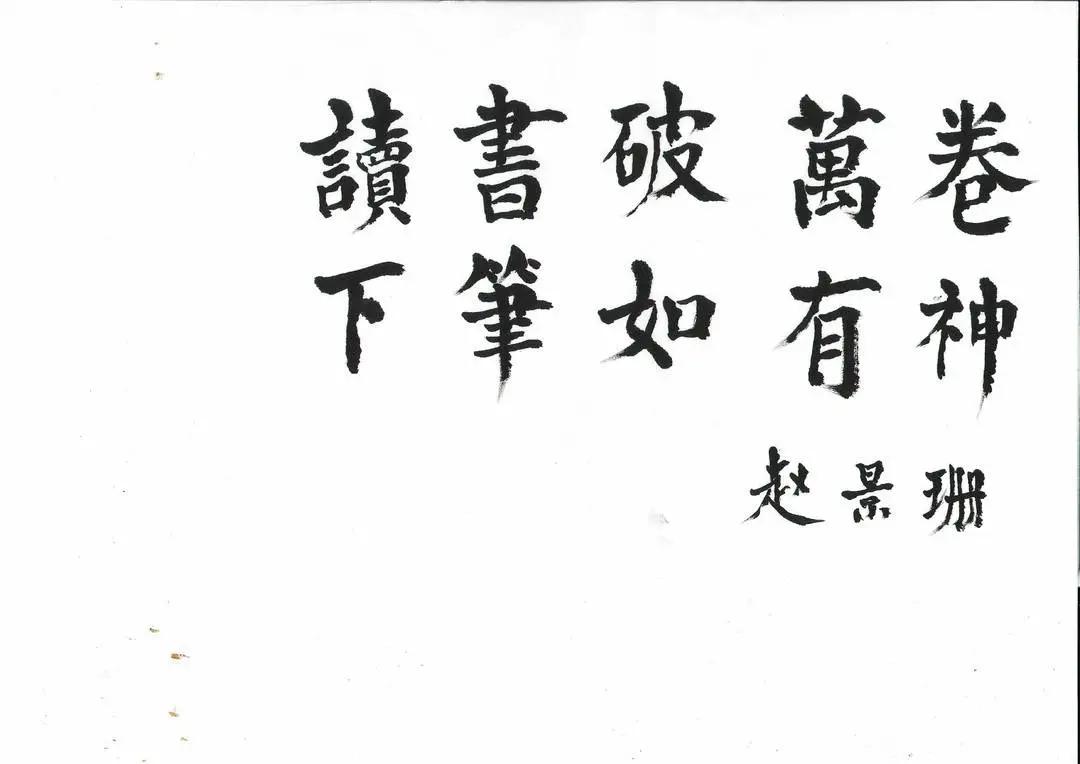 讀書破萬卷
下筆如有神
赵景珊